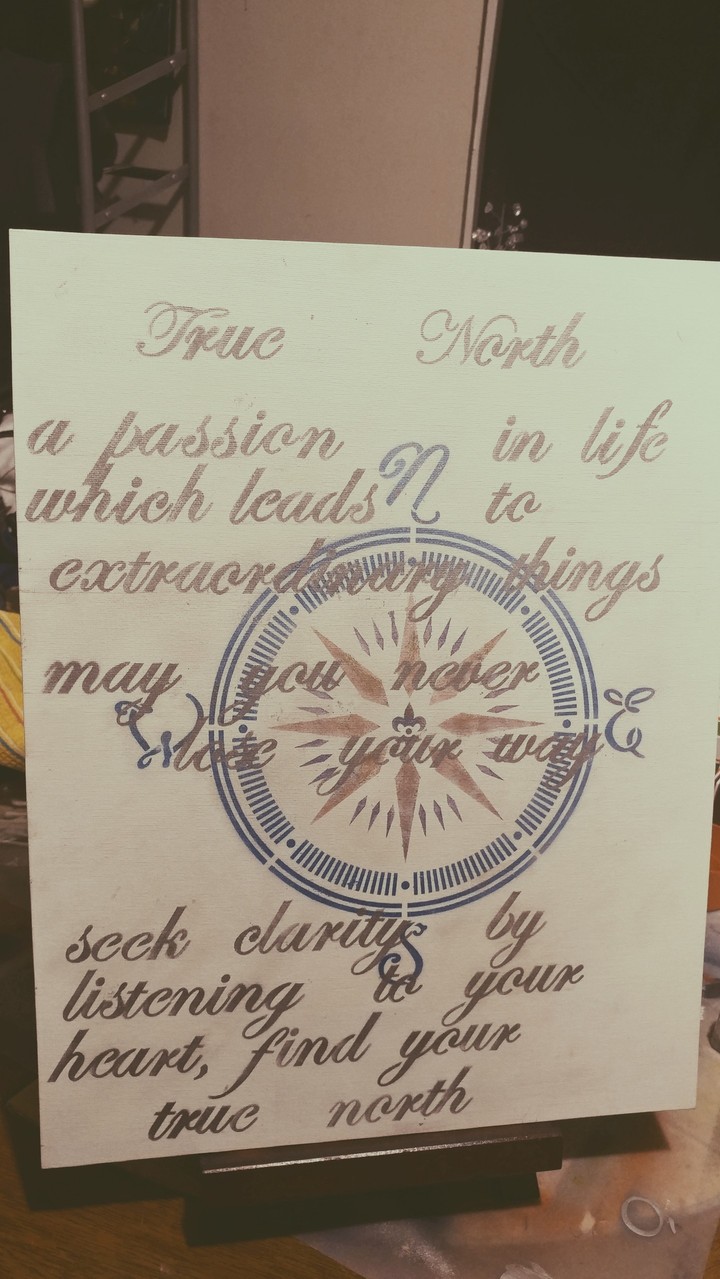 True North
a passion in life
N
which leads to
extraordinary things
may you never
W E
lose your way
seek clarity by
S
listening to your
heart, find your
true north